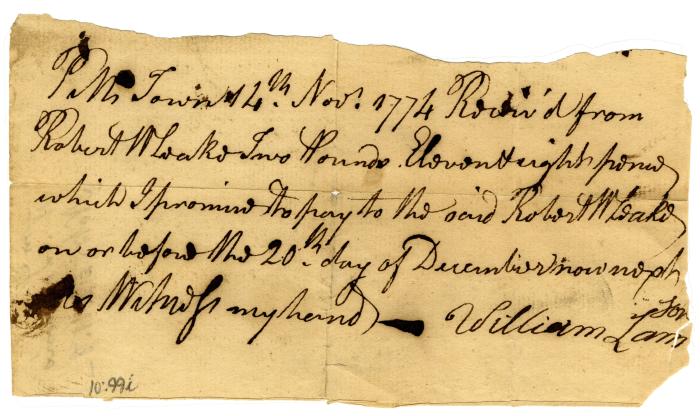 Pitts Town 14th Novr. 1774 Receiv'd from
Robert W Leake Two Pounds Eleven & eight pence
which I promise to pay to the said Robert W Leake
on or before the 20th day of December now next
as Witness my hand
William Lamson
10.99i